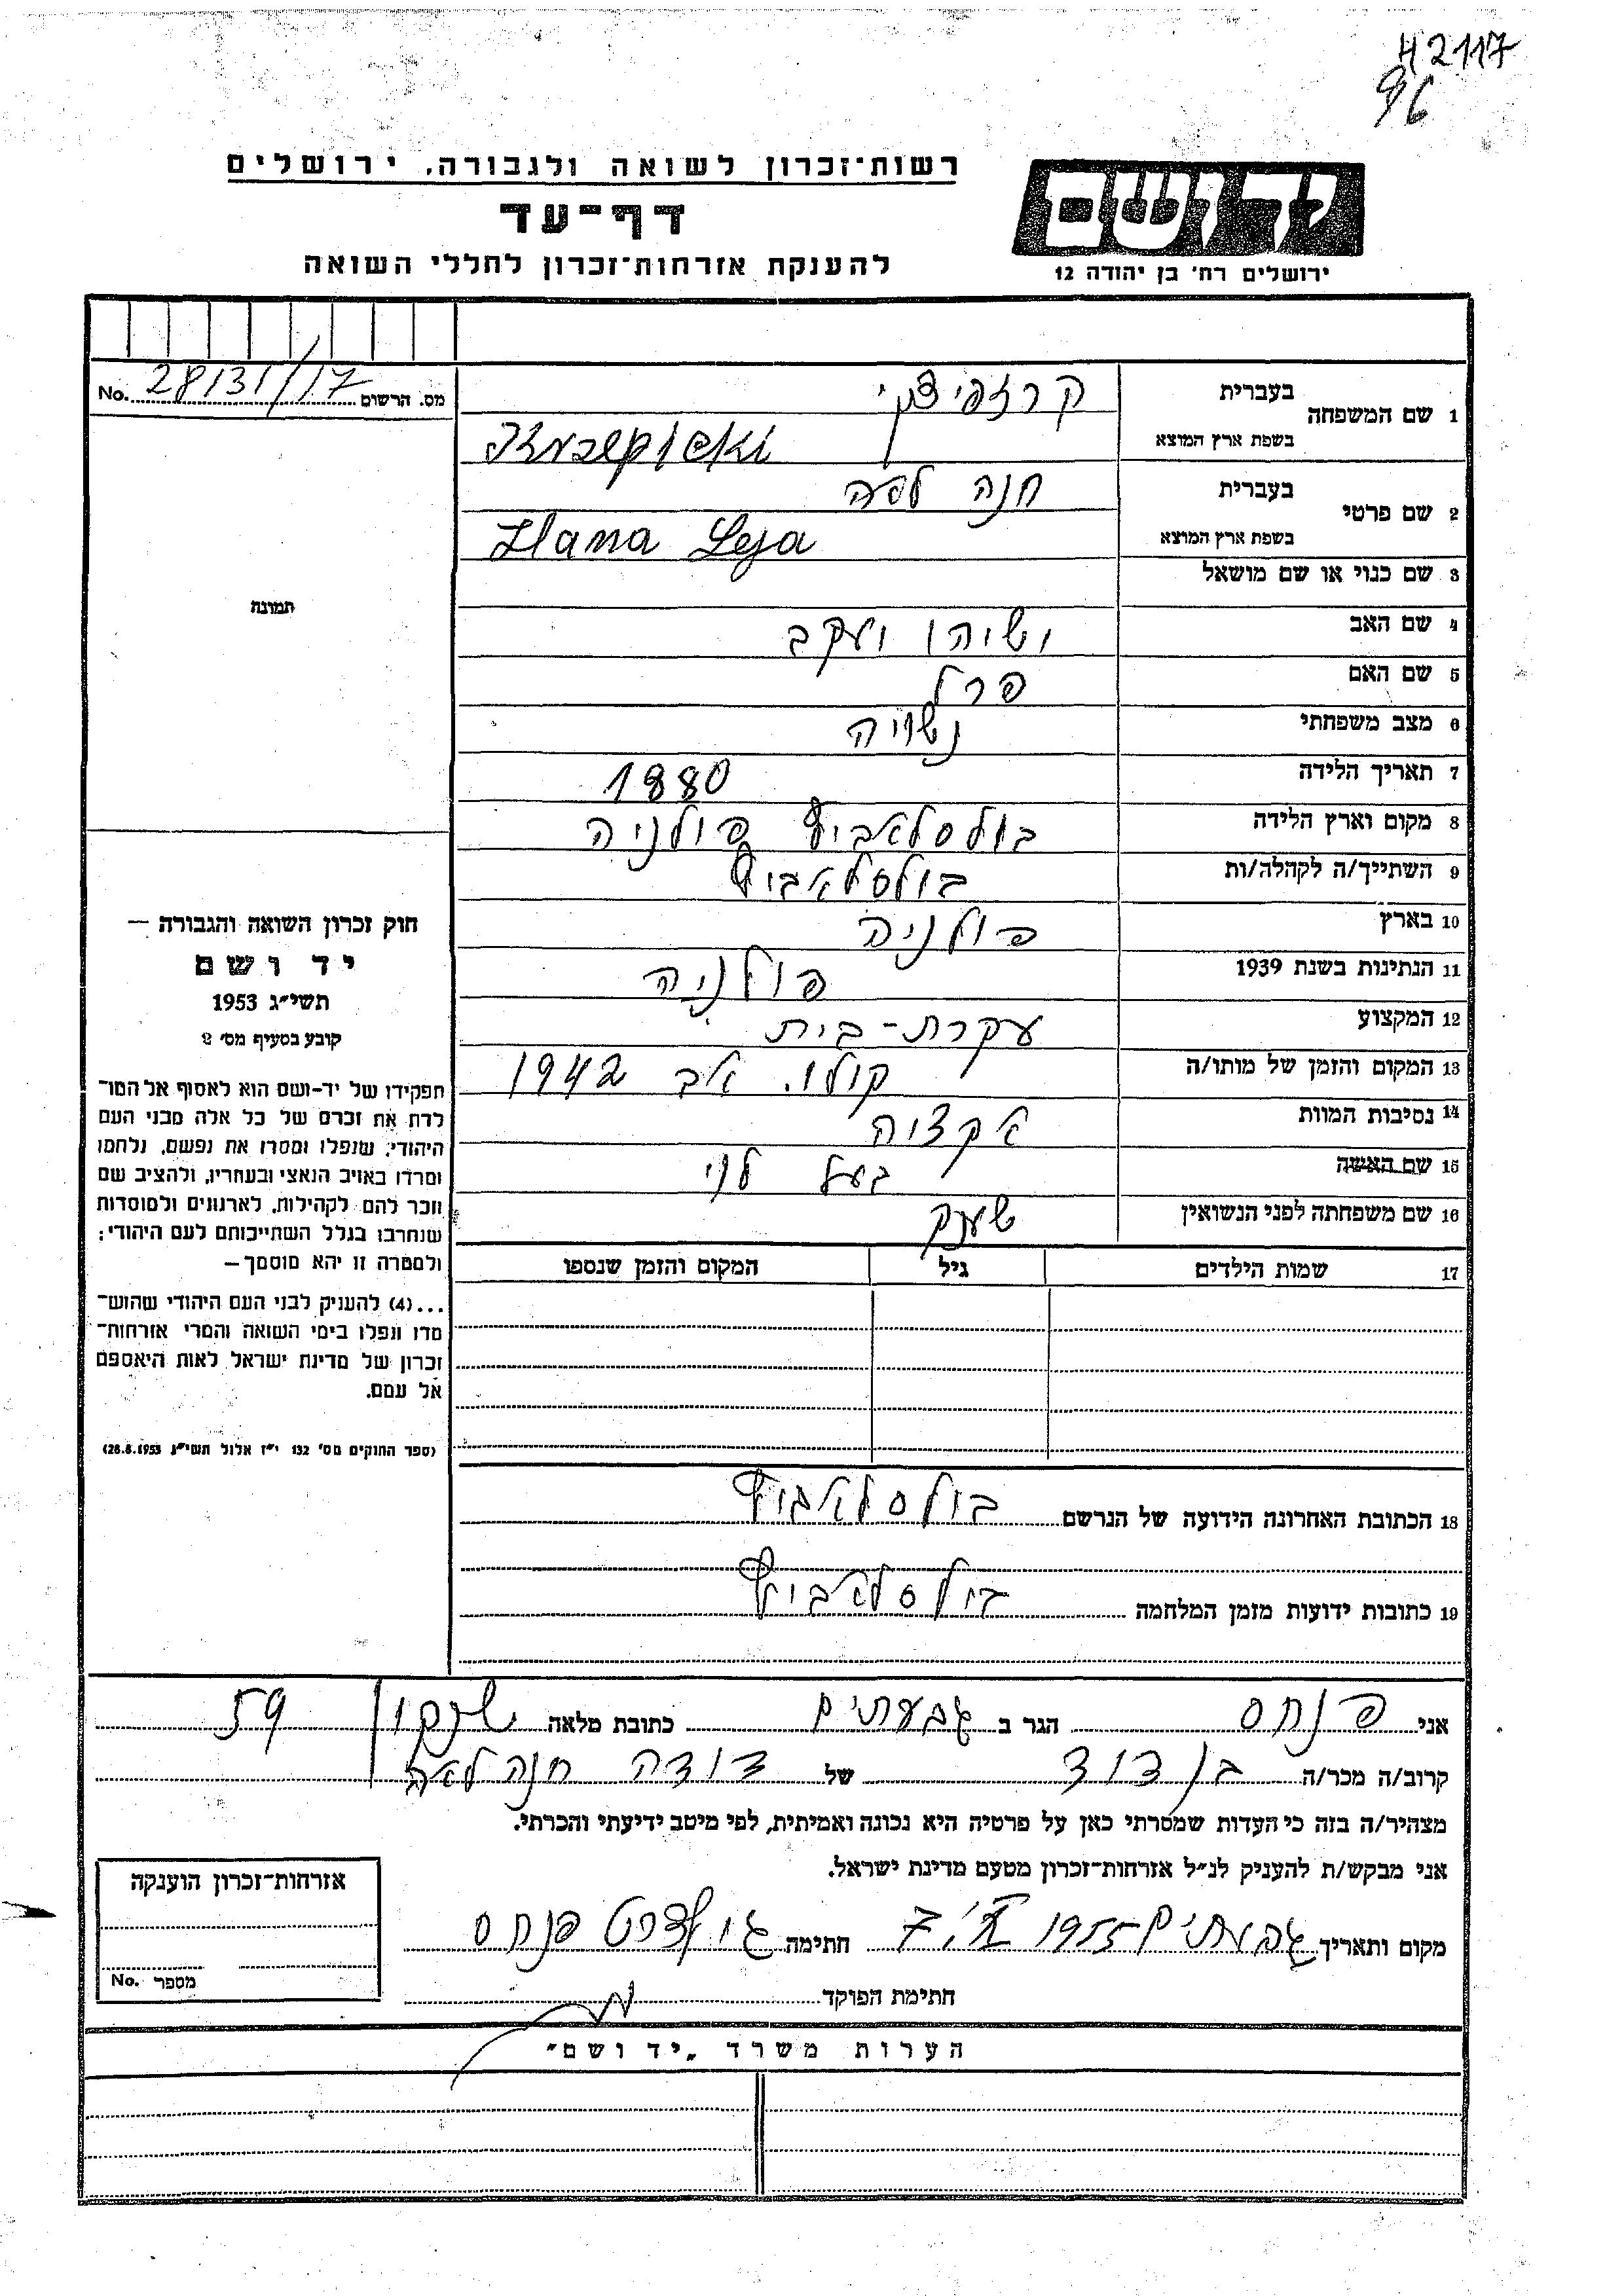 H 2117
96
רשות־זכרון לשואה ולגבורה, ירושלים
דף־עד
להענקת אזרחות־זכרון לחללי השואה
יד ושם
ירושלים רח׳ בן יהודה 12
מס. הרשום 28131/17 No.
1 שם המשפחה
בעברית קרזפיצקי
בשפת ארץ המוצא
2 שם פרטי
בעברית חנה לאה
בשפת ארץ המוצא Hana Leja
3 שם כנוי או שם מושאל
4 שם האב ישיהו יעקב
5 שם האם פרל
6 מצב משפחתי נשויה
7 תאריך הלידה 1880
8 מקום וארץ הלידה בולסלאביץ פולניה
9 השתייך/ה לקהלה/ות בולסלאביץ
10 בארץ פולניה
11 הנתינות בשנת 1939 פולניה
12 המקצוע עקרת-בית
13 המקום והזמן של מותו/ה אב 1942
14 נסיבות המוות אקציה
15 שם האשה בעל לוי
16 שם משפחתה לפני הנשואין
17 שמות הילדים גיל המקום והזמן שנספו
תמונה
חוק זכרון השואה והגבורה —
יד ושם
תשי״ג 1953
קובע בסעיף מס׳ 2
תפקידו של יד-ושם הוא לאסוף אל המו־
לדת את זכרם של כל אלה מבני העם
היהודי, שנפלו ומסרו את נפשם, נלחמו
ומרדו באויב הנאצי ובעוזריו, ולהציב שם
וזכר להם לקהילות, לארגונים ולמוסדות
שנחרבו בגלל השתייכותם לעם היהודי;
ולמטרה זו יהא מוסמך —
...(4) להעניק לבני העם היהודי שהוש־
מדו ונפלו בימי השואה והמרי אזרחות־
זכרון של מדינת ישראל לאות היאספם
אל עמם.
(ספר החוקים מס׳ 132 י״ז אלול תשי״ג 28.8.1953)
18 הכתובת האחרונה הידועה של הנרשם בולסלאביץ
19 כתובות ידועות מזמן המלחמה בולסלאביץ
אני פנחס הגר ב גבעתים כתובת מלאה שנקין 59
קרוב/ה מכר/ה בן דוד של דודה חנה לאה
מצהיר/ה בזה כי העדות שמסרתי כאן על פרטיה היא נכונה ואמיתית, לפי מיטב ידיעתי והכרתי.
אני מבקש/ת להעניק לנ״ל אזרחות־זכרון מטעם מדינת ישראל.
מקום ותאריך גבעתים 1955 חתימה פנחס
חתימת הפוקד
אזרחות־זכרון הוענקה
מספר No.
הערות משרד „יד ושם״